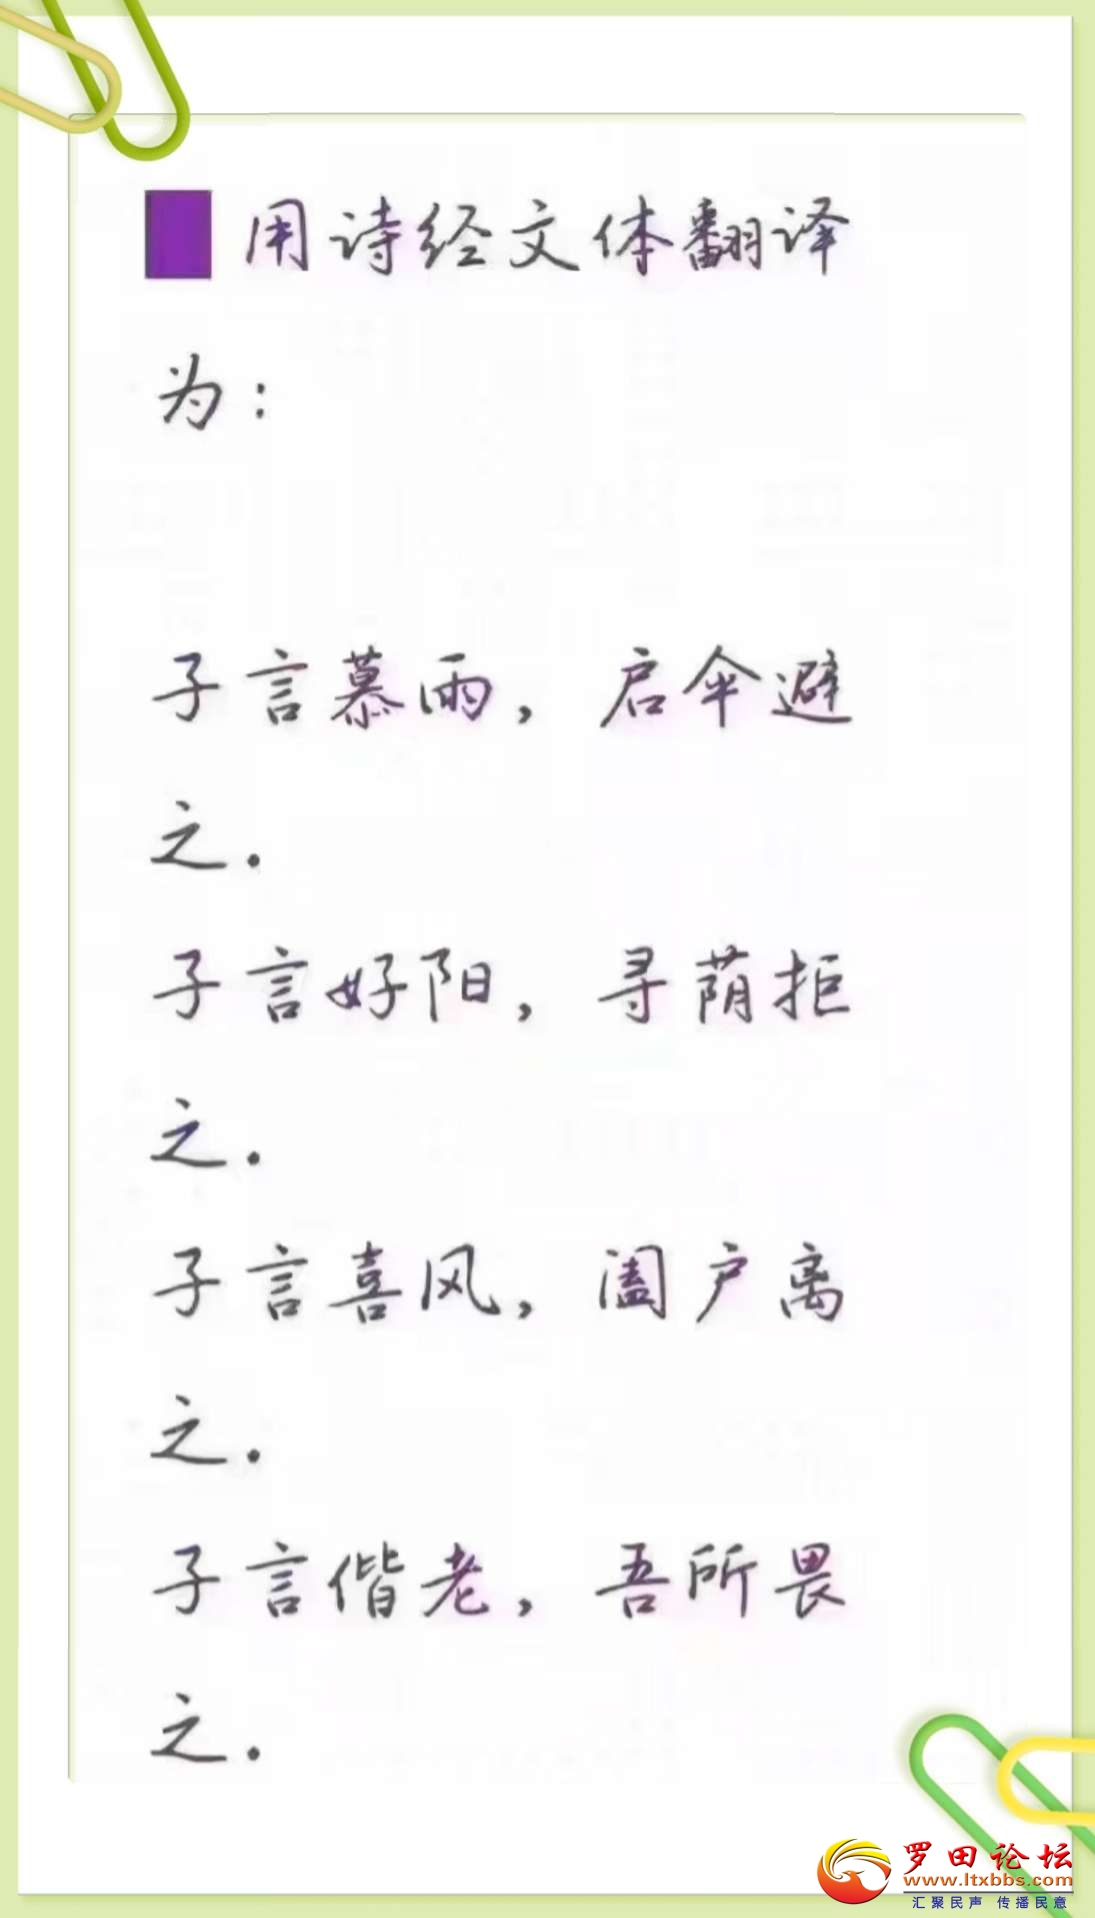 用诗经文体翻译
为：
子言慕雨，启伞避
之.
子言好阳，寻荫拒
之.
子言喜风，阖户离
之.
子言偕老，吾所畏
之.
罗田论坛
www.ltxbbs.com
汇聚民声 传播民意